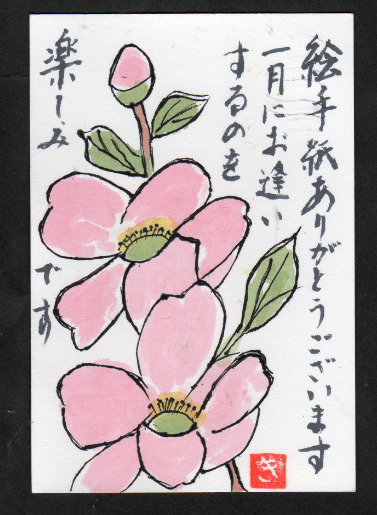 絵手紙ありがとうございます
一月にお逢い
するのを
楽しみ
です
き